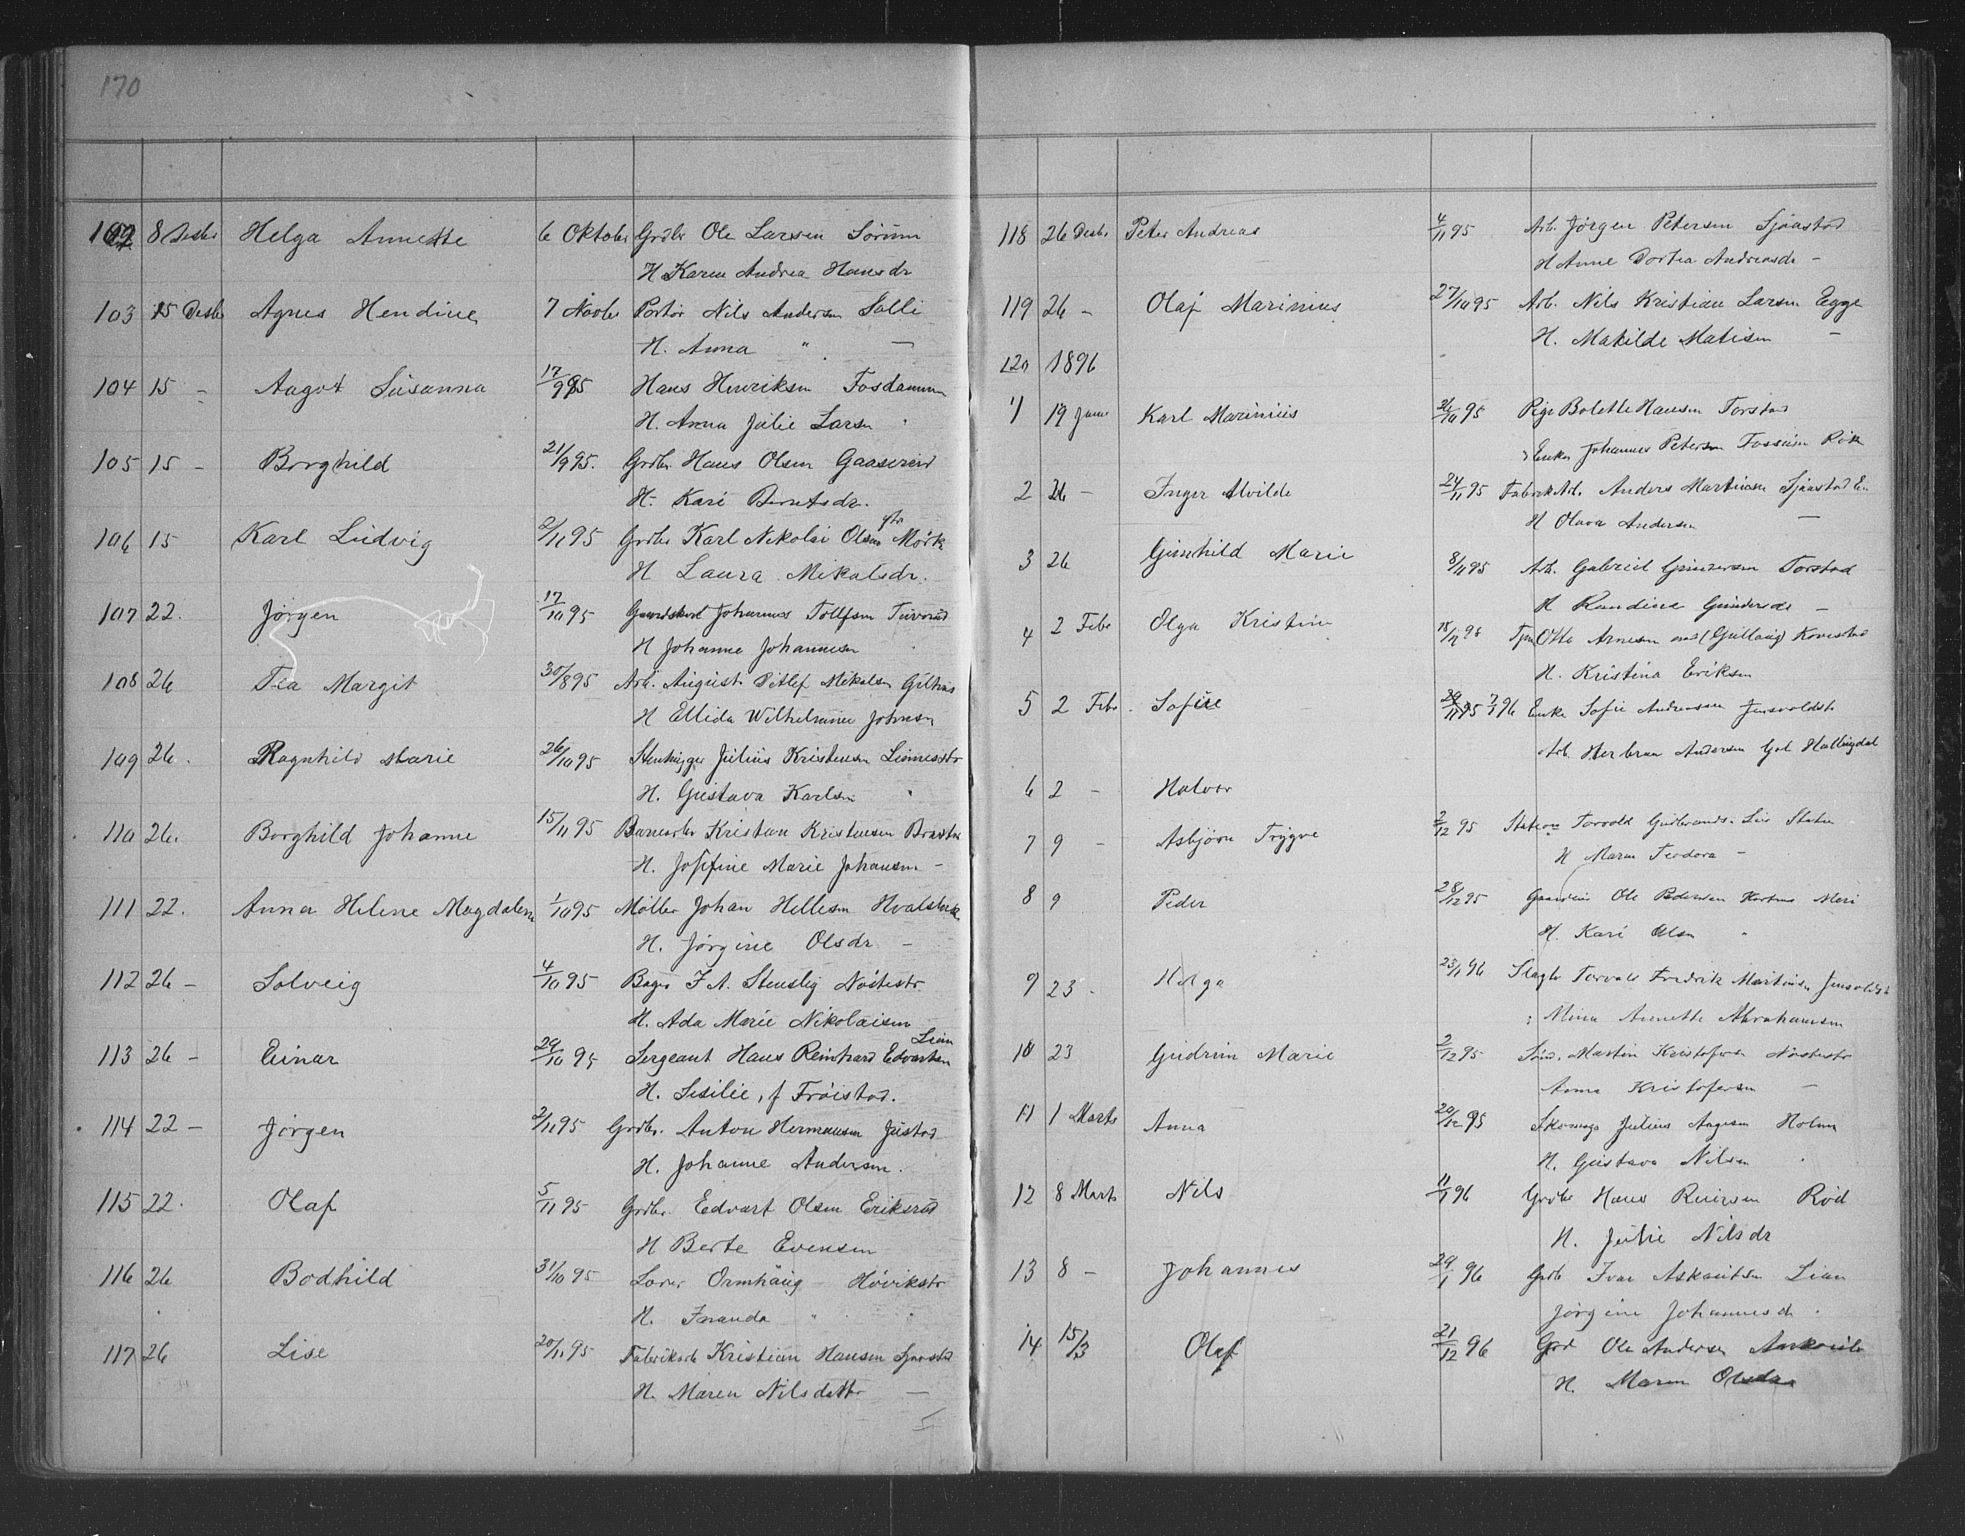 170
102 8 Desbr Helga Annette 6 Oktober Grdbr Ole Larsen Sørum
H Karen Andrea Hansdr
103 15 Desbr Agnes Hendine 7 Novbr Portør Nils Andersen Solli
H. Anna " —
104 15 - Aagot Susanna 17/9 95 Hans Henriksen Fosdammen
H. Anna Julie Larsn
105 15 - Borghild 21/9 95. Grdbr. Hans Olsen
H. Kari Berntsdr.
106 15 Karl Ludvig 2/11 95 Grdbr Karl Nikolai Olsen Mørk
H Laura Mikalsdr.
107 22. Jørgen 17/10 95 Johannes Tollfsen
H Johanne Johannesen
108 26 Tea Margit 30/8 95 Arb. August Ditlef Mikalsen
H Ellida Wilhelmine Johnsn
109 26. Ragnhild Marie 26/10 95 Stenhugger Julius Kristensen
H. Gustava Karlsen
110 26. Borghild Johanne 15/11 95 Kristian Kristensen
H. Josefine Marie Johansen -
111 22. Anna Helene Magdalene 1/10 95 Møller Johan Hellesen Hvalstad
H. Jørgine Olsdr -
112 26 - Solveig 4/10 95 Bager F A. Stenslig Nøstestr
H. Ada Marie Nikolaisen
113 26 - Einar 29/10 95 Sergeant Hans Reinhard Edvartsen Lian
H. Sesilie, f Frøistad.
114 22 - Jørgen 2/11 95 Grdbr. Anton Hermansen Justad
H. Johanne Andersen.
115 22. Olaf 5/11 95 Grdbr. Edvart Olsen Eriksrud
H Berte Evensen
116 26 Bodhild 31/10 95 Ormhaug Høvikstr
H. " "
117 26 Lise 20/11 95 Fabrikarb Kristian Hansen Sjaastad
H. Maren Nilsdattr —
118 26 Desbr Peter Andreas 4/11 95 Arb. Jørgen Petersen Sjaastad
H Anne Dortea Andreasdr -
119 26 - Olaf Marinius 27/10 95 Arb. Nils Kristian Larsn Egge
H. Matilde Matisen —
120 1896
1 19 Janr Karl Marinius 26/10 95 Pige Bolette Hansen Torstad
Enkm Johannes Petersen Fossum
2 26 - Inger Alvilde 24/11 95 Fabrik Arb. Anders Martinsen Sjaastad
H Olava Andersen —
3 26 Gunhild Marie 8/11 95 Arb. Gabriel Gundersen Torstad
H Randine Gundersdr -
4 2 Febr Olga Kristine 18/11 95 Otto Arnesen
H. Kristina Eriksen
5 2 Febr. Sofie 29/11 95 7/1 96 Enke Sofie Andreassen
Arb. Herbran Andersen Gol Hallingdal
6 2 - Halvor
7 9 - Asbjørn Trygve 2/12 95 Torvald Gudbrands. Lier Station
H Maren Teodora -
8 9 Peder 28/12 95 Ole Pedersen
H. Kari Olsn "
9 23 - Helga 23/1 96 Slagtr Torvald Fredrik Martinsen
Mina Annette Abrahamsen
10 23 Gudrun Marie 2/12 95 Martin Kristofersen Nøstestr
Anna Kristofersen —
11 1 Marts Anna 20/12 95 Skomag Julius Aagesen Holmen
H. Gustava Nilsen
12 8 Marts Nils 11/1 96 Grdbr Hans Reiersen Rød
H. Julie Nilsdr
13 8 - Johannes 29/1 96 Grdb Ivar Askautsen Lian
Jørgine Johannesdr.
14 15/3 Olaf 21/12 96 Grd Ole Andersen
H. Maren Olsdr